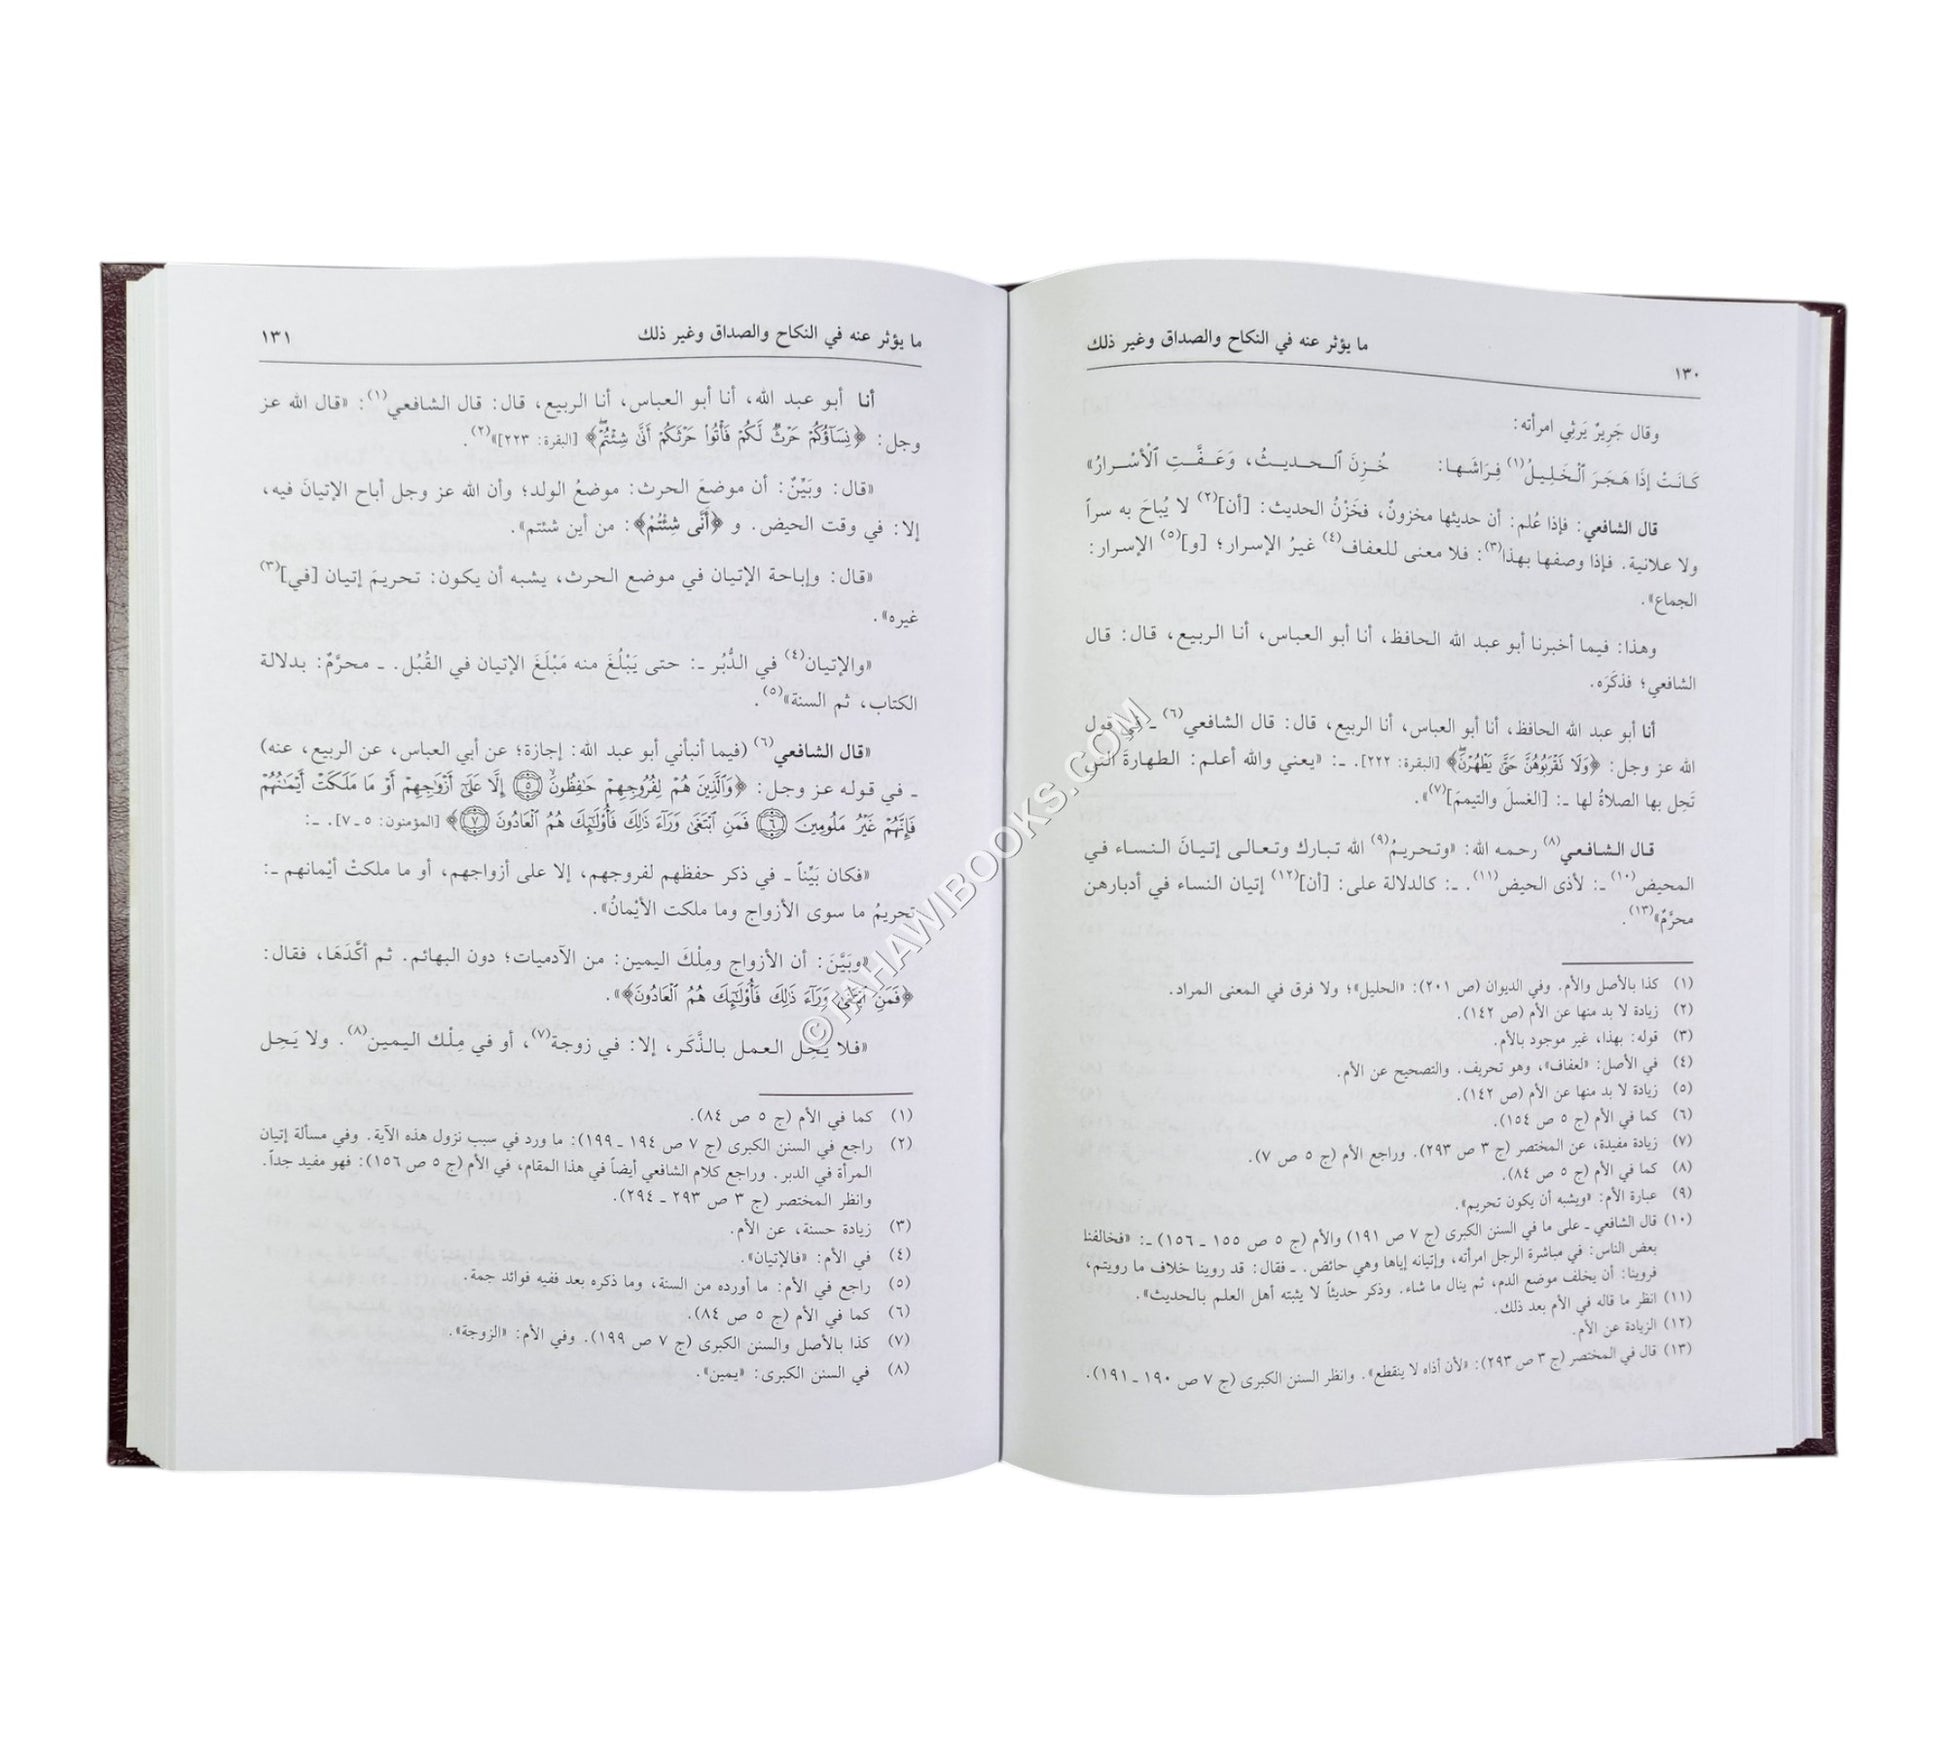 ١٣٠
ما يؤثر عنه في النكاح والصداق وغير ذلك
وقال جَرِيرٌ يَرثِي امرأته:
كَانَتْ إذَا هَجَرَ ٱلْخَلِيلُ(١) فِرَاشَـها: خُـزِنَ ٱلْـحـديـثُ، وَعَـفَّـتِ ٱلْأَسْـرارُ»
قال الشافعي: فإذا عُلم: أن حديثها مخزونٌ، فخَزْنُ الحديث: [أن](٢) لا يُباحَ به سراً
ولا علانية. فإذا وصفها بهذا(٣): فلا معنى للعفاف(٤) غيرُ الإسرار؛ [و](٥) الإسرار:
الجماع».
وهذا: فيما أخبرنا أبو عبد الله الحافظ، أنا أبو العباس، أنا الربيع، قال: قال
الشافعي؛ فذكَرَه.
أنا أبو عبد الله الحافظ، أنا أبو العباس، أنا الربيع، قال: قال الشافعي(٦) ـ في قول
الله عز وجل: ﴿وَلَا نَقْرَبُوهُنَّ حَتَّىٰ يَطْهُرْنَۖ﴾ [البقرة: ٢٢٢]. ـ: «يعني والله أعلم: الطهارةَ التي
تَحِل بها الصلاةُ لها ـ: [الغسلَ والتيممَ](٧)».
قال الشافعي(٨) رحمه الله: «وتحريمُ(٩) الله تبارك وتعالى إتيانَ النساء في
المحيض(١٠) ـ: لأذى الحيض(١١). ـ: كالدلالة على: [أن](١٢) إتيان النساء في أدبارهن
محرَّمٌ»(١٣).
(١) كذا بالأصل والأم. وفي الديوان (ص ٢٠١): «الحليل»؛ ولا فرق في المعنى المراد.
(٢) زيادة لا بد منها عن الأم (ص ١٤٢).
(٣) قوله: بهذا، غير موجود بالأم.
(٤) في الأصل: «لعفاف»، وهو تحريف. والتصحيح عن الأم.
(٥) زيادة لا بد منها عن الأم (ص ١٤٢).
(٦) كما في الأم (ج ٥ ص ١٥٤).
(٧) زيادة مفيدة، عن المختصر (ج ٣ ص ٢٩٣). وراجع الأم (ج ٥ ص ٧).
(٨) كما في الأم (ج ٥ ص ٨٤).
(٩) عبارة الأم: «ويشبه أن يكون تحريم».
(١٠) قال الشافعي ـ على ما في السنن الكبرى (ج ٧ ص ١٩١) والأم (ج ٥ ص ١٥٥ ـ ١٥٦) ـ: «فخالفنا
بعض الناس: في مباشرة الرجل امرأته، وإتيانه إياها وهي حائض. ـ فقال: قد روينا خلاف ما رويتم،
فروينا: أن يخلف موضع الدم، ثم ينال ما شاء. وذكر حديثاً لا يثبته أهل العلم بالحديث».
(١١) انظر ما قاله في الأم بعد ذلك.
(١٢) الزيادة عن الأم.
(١٣) قال في المختصر (ج ٣ ص ٢٩٣): «لأن أذاه لا ينقطع». وانظر السنن الكبرى (ج ٧ ص ١٩٠ ـ ١٩١).
ما يؤثر عنه في النكاح والصداق وغير ذلك
١٣١
أنا أبو عبد الله، أنا أبو العباس، أنا الربيع، قال: قال الشافعي(١): «قال الله عز
وجل: ﴿نِسَآؤُكُمْ حَرْثٌ لَّكُمْ فَأْتُوا۟ حَرْثَكُمْ أَنَّىٰ شِئْتُمْۖ﴾ [البقرة: ٢٢٣]»(٢).
«قال: وبَيِّنٌ: أن موضعَ الحرث: موضعُ الولد؛ وأن الله عز وجل أباح الإتيانَ فيه،
إلا: في وقت الحيض. و ﴿أَنَّى شِئْتُمْ﴾: من أين شئتم».
«قال: وإباحة الإتيان في موضع الحرث، يشبه أن يكون: تحريمَ إتيان [في](٣)
غيره».
«والإتيان(٤) في الدُّبُر ـ: حتى يَبْلُغَ منه مَبْلَغَ الإتيان في القُبُل. ـ محرَّمٌ: بدلالة
الكتاب، ثم السنة»(٥).
«قال الشافعي(٦) (فيما أنبأني أبو عبد الله: إجازة؛ عن أبي العباس، عن الربيع، عنه)
ـ في قوله عز وجل: ﴿وَالَّذِينَ هُمْ لِفُرُوجِهِمْ حَٰفِظُونَۙ ۝٥ إِلَّا عَلَىٰٓ أَزْوَٰجِهِمْ أَوْ مَا مَلَكَتْ أَيْمَٰنُهُمْ
فَإِنَّهُمْ غَيْرُ مَلُومِينَ ۝٦ فَمَنِ ٱبْتَغَىٰ وَرَآءَ ذَٰلِكَ فَأُو۟لَٰٓئِكَ هُمُ ٱلْعَادُونَ ۝٧﴾ [المؤمنون: ٥ ـ ٧]. ـ:
«فكان بَيِّناً ـ في ذكر حفظهم لفروجهم، إلا على أزواجهم، أو ما ملكتْ أيْمانهم ـ:
تحريمُ ما سوى الأزواج وما ملكت الأيْمانُ».
«وبَيَّنَ: أن الأزواج ومِلْكَ اليمين: من الآدميات؛ دون البهائم. ثم أكَّدَهَا، فقال:
﴿فَمَنِ ٱبْتَغَىٰ وَرَآءَ ذَٰلِكَ فَأُو۟لَٰٓئِكَ هُمُ ٱلْعَادُونَ﴾».
«فلا يَحِل العمل بالذَّكَر، إلا: في زوجة(٧)، أو في مِلْك اليمين(٨). ولا يَحِل
(١) كما في الأم (ج ٥ ص ٨٤).
(٢) راجع في السنن الكبرى (ج ٧ ص ١٩٤ ـ ١٩٩): ما ورد في سبب نزول هذه الآية. وفي مسألة إتيان
المرأة في الدبر. وراجع كلام الشافعي أيضاً في هذا المقام، في الأم (ج ٥ ص ١٥٦): فهو مفيد جداً.
وانظر المختصر (ج ٣ ص ٢٩٣ ـ ٢٩٤).
(٣) زيادة حسنة، عن الأم.
(٤) في الأم: «فالإتيان».
(٥) راجع في الأم: ما أورده من السنة، وما ذكره بعد ففيه فوائد جمة.
(٦) كما في الأم (ج ٥ ص ٨٤).
(٧) كذا بالأصل والسنن الكبرى (ج ٧ ص ١٩٩). وفي الأم: «الزوجة».
(٨) في السنن الكبرى: «يمين».
© TAHAWIBOOKS.COM